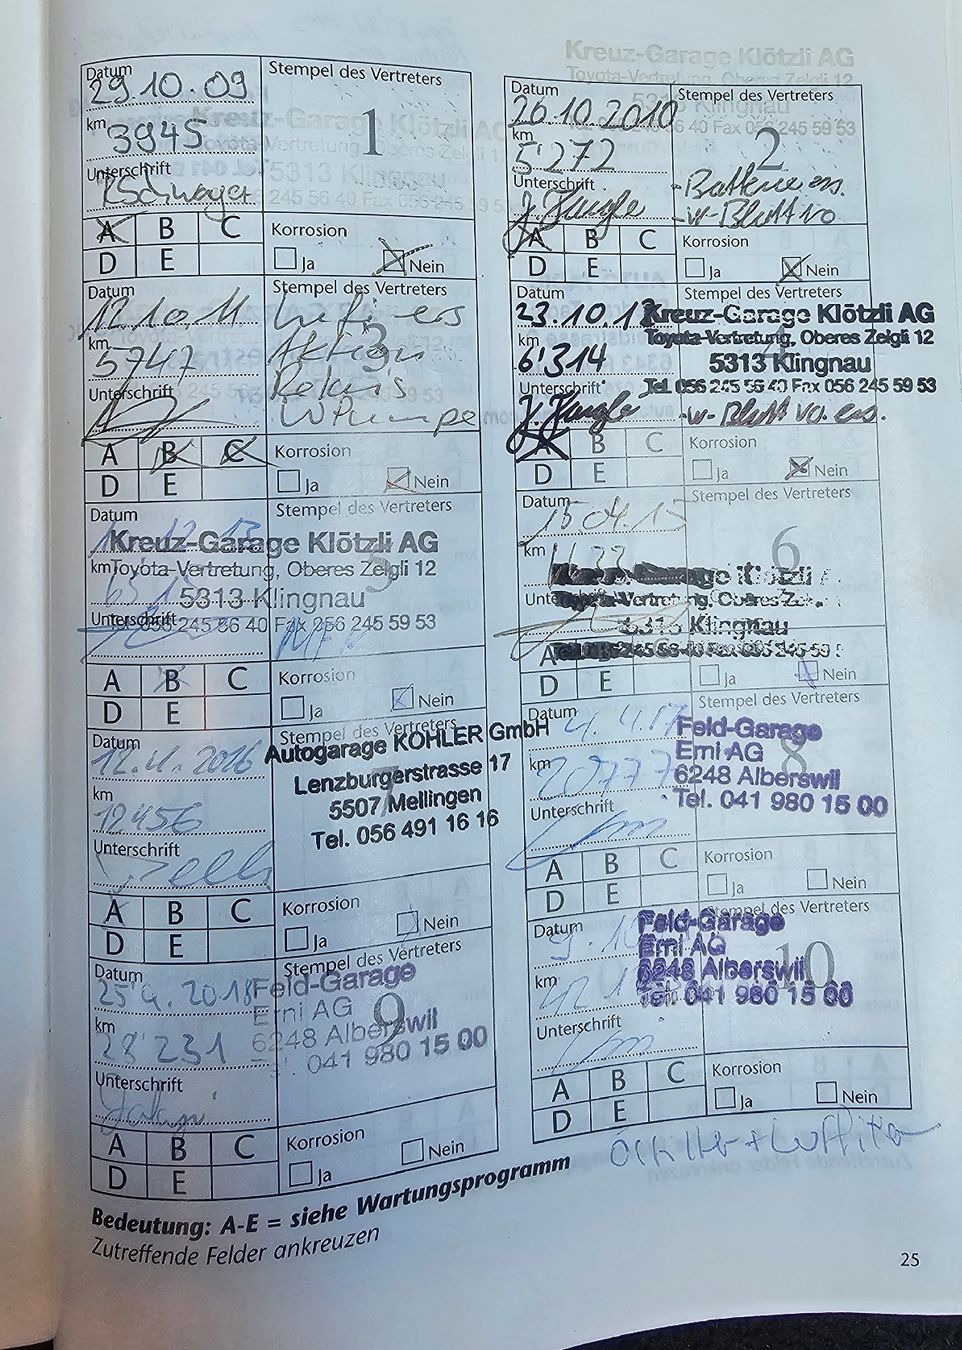 Kreuz-Garage Klötzli AG
Toyota-Vertretung, Oberes Zelgli 12
5313 Klingnau
Datum
29.10.09
km
3945
Unterschrift
Stempel des Vertreters
1
Kreuz-Garage Klötzli AG
5313 Klingnau
A B C
D E
Korrosion
Ja Nein
Datum
26.10.2010
km
5'272
Unterschrift
Stempel des Vertreters
2
56 40 Fax 056 245 59 53
A B C
D E
Korrosion
Ja Nein
Datum
12.10.11
km
5747
Unterschrift
Stempel des Vertreters
3
Aktion
A B C
D E
Korrosion
Ja Nein
Datum
23.10.12
km
6'314
Unterschrift
Stempel des Vertreters
Kreuz-Garage Klötzli AG
Toyota-Vertretung, Oberes Zelgli 12
5313 Klingnau
Tel. 056 245 56 40 Fax 056 245 59 53
A B C
D E
Korrosion
Ja Nein
Datum
km
Unterschrift
Stempel des Vertreters
5
Kreuz-Garage Klötzli AG
Toyota-Vertretung, Oberes Zelgli 12
5313 Klingnau
056 245 56 40 Fax 056 245 59 53
A B C
D E
Korrosion
Ja Nein
Datum
15.04.15
km
Unterschrift
Stempel des Vertreters
6
Klötzli
Toyota-Vertretung, Oberes
5313 Klingnau
A
D E
Korrosion
Ja Nein
Datum
12.4.2016
km
12456
Unterschrift
Stempel des Vertreters
7
Autogarage KOHLER GmbH
Lenzburgerstrasse 17
5507 Mellingen
Tel. 056 491 16 16
A B C
D E
Korrosion
Ja Nein
Datum
4.17
km
20777
Unterschrift
Stempel des Vertreters
8
Feld-Garage
Erni AG
6248 Alberswil
Tel. 041 980 15 00
A B C
D E
Korrosion
Ja Nein
Datum
25.4.2018
km
28'231
Unterschrift
Stempel des Vertreters
9
Feld-Garage
Erni AG
6248 Alberswil
041 980 15 00
A B C
D E
Korrosion
Ja Nein
Datum
km
Unterschrift
Stempel des Vertreters
10
Feld-Garage
Erni AG
6248 Alberswil
Tel. 041 980 15 00
A B C
D E
Korrosion
Ja Nein
Bedeutung: A-E = siehe Wartungsprogramm
Zutreffende Felder ankreuzen
25